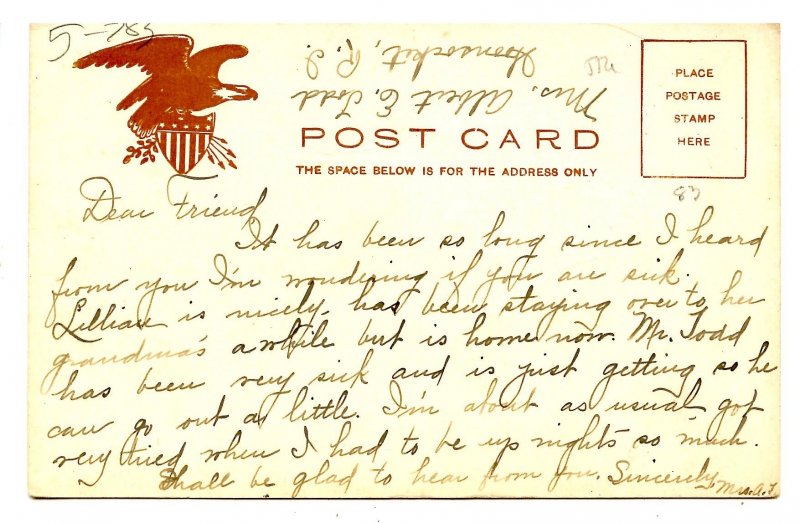 5-783
Mrs. Albert E. Todd
Woonsocket, R. I.
POST CARD
THE SPACE BELOW IS FOR THE ADDRESS ONLY
PLACE
POSTAGE
STAMP
HERE
83
Dear Friend
It has been so long since I heard
from you I'm wondering if you are sick.
Lillian is nicely. has been staying over to her
grandma's awhile but is home now. Mr. Todd
has been very sick and is just getting so he
can go out a little. I'm about as usual got
very tired when I had to be up nights so much.
Shall be glad to hear from you. Sincerely Mrs. A. T.